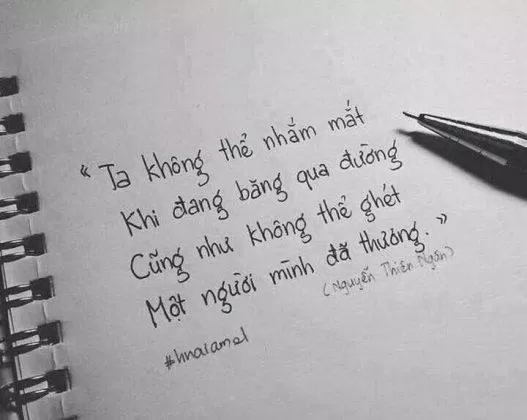 “ Ta không thể nhắm mắt
Khi đang băng qua đường
Cũng như không thể ghét
Một người mình đã thương. ”
(Nguyễn Thiên Ngân)
#hnaiamel